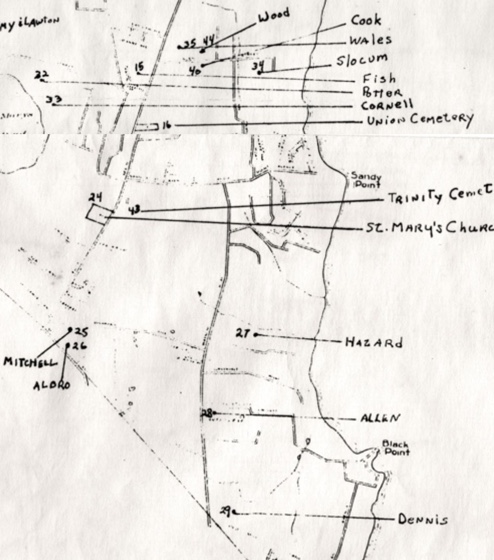 Wood
Cook
35 44
WALES
40
34
SLOCUM
15
Fish
32
POTTER
33
CORNELL
16
UNION CEMETERY
Sandy
Point
24
43
TRINITY CEMET
ST. MARY'S CHURC
25
26
MITCHELL
ALDRO
27
HAZARD
28
ALLEN
Black
Point
29
DENNIS